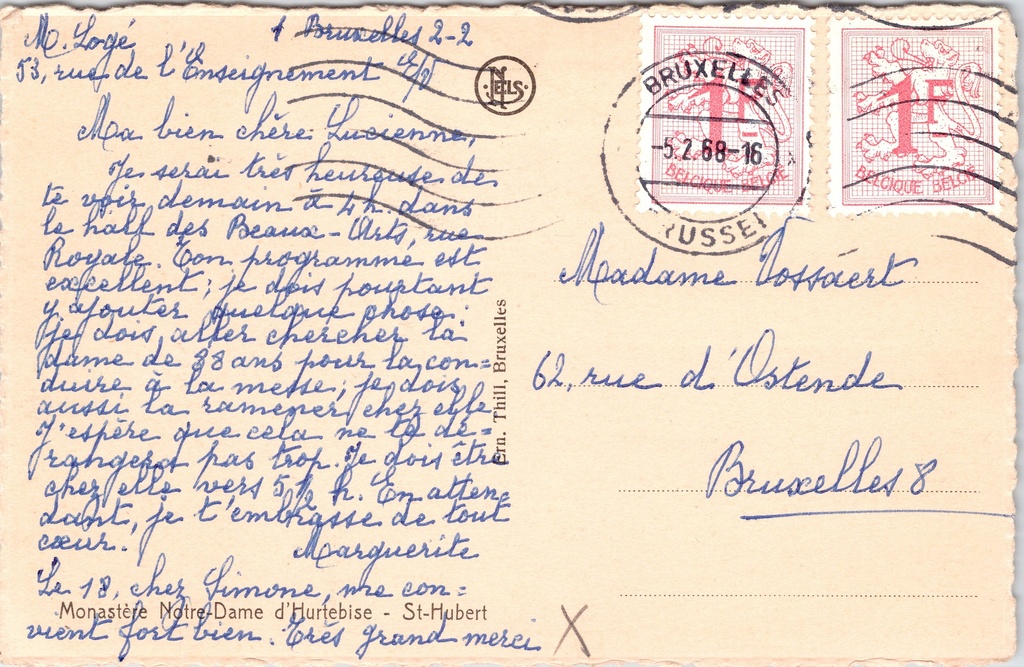 M. Logé
1 Bruxelles 2-2
53, rue de l'Enseignement
NELS
Ma bien chère Lucienne,
Je serai très heureuse de
te voir demain à 4 h. dans
le hall des Beaux-Arts, rue
Royale. Ton programme est
excellent; je dois pourtant
y ajouter quelque chose:
je dois aller chercher la
dame de 88 ans pour la con=
duire à la messe; je dois
aussi la ramener chez elle.
J'espère que cela ne te dé=
rangera pas trop. Je dois être
chez elle vers 5 1/2 h. En atten=
dant, je t'embrasse de tout
cœur.
Marguerite
Le 18, chez Simone, me con=
vient fort bien. Très grand merci
Monastère Notre-Dame d'Hurtebise - St-Hubert
X
Ern. Thill, Bruxelles
1F
BELGIQUE BELGIE
1F
BELGIQUE BELGIE
BRUXELLES
-5.2.68-16
BRUSSEL
Madame Vossaert
62, rue d'Ostende
Bruxelles 8